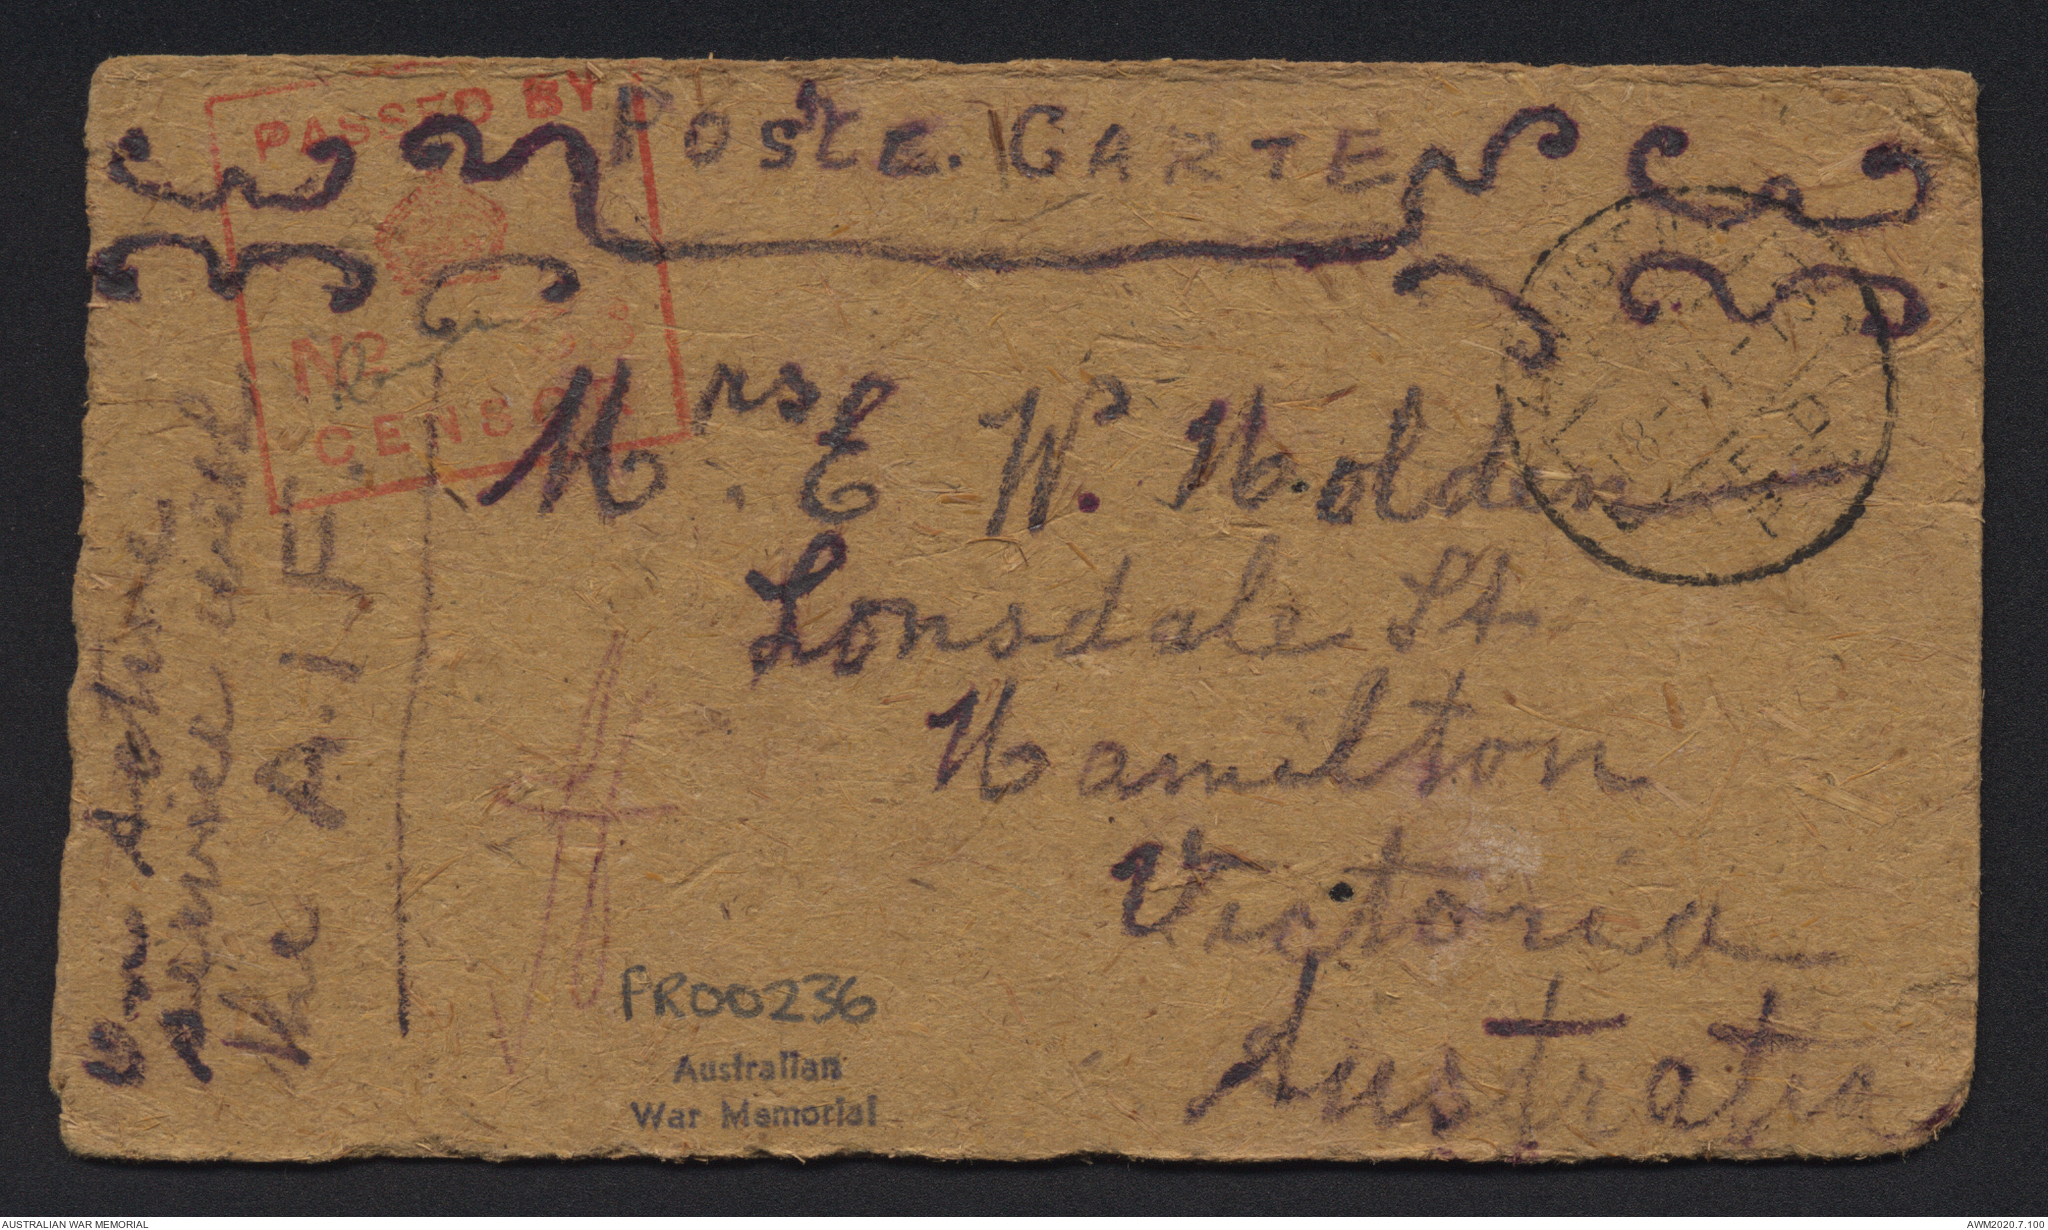 PASSED BY
CENSOR
POSTE. CARTE
Mrs. E. W. Holden
Lonsdale St
Hamilton
Victoria
Australia
on active
service with
the A.I.F.
PR00236
Australian
War Memorial
AUSTRALIAN WAR MEMORIAL
AWM2020.7.100